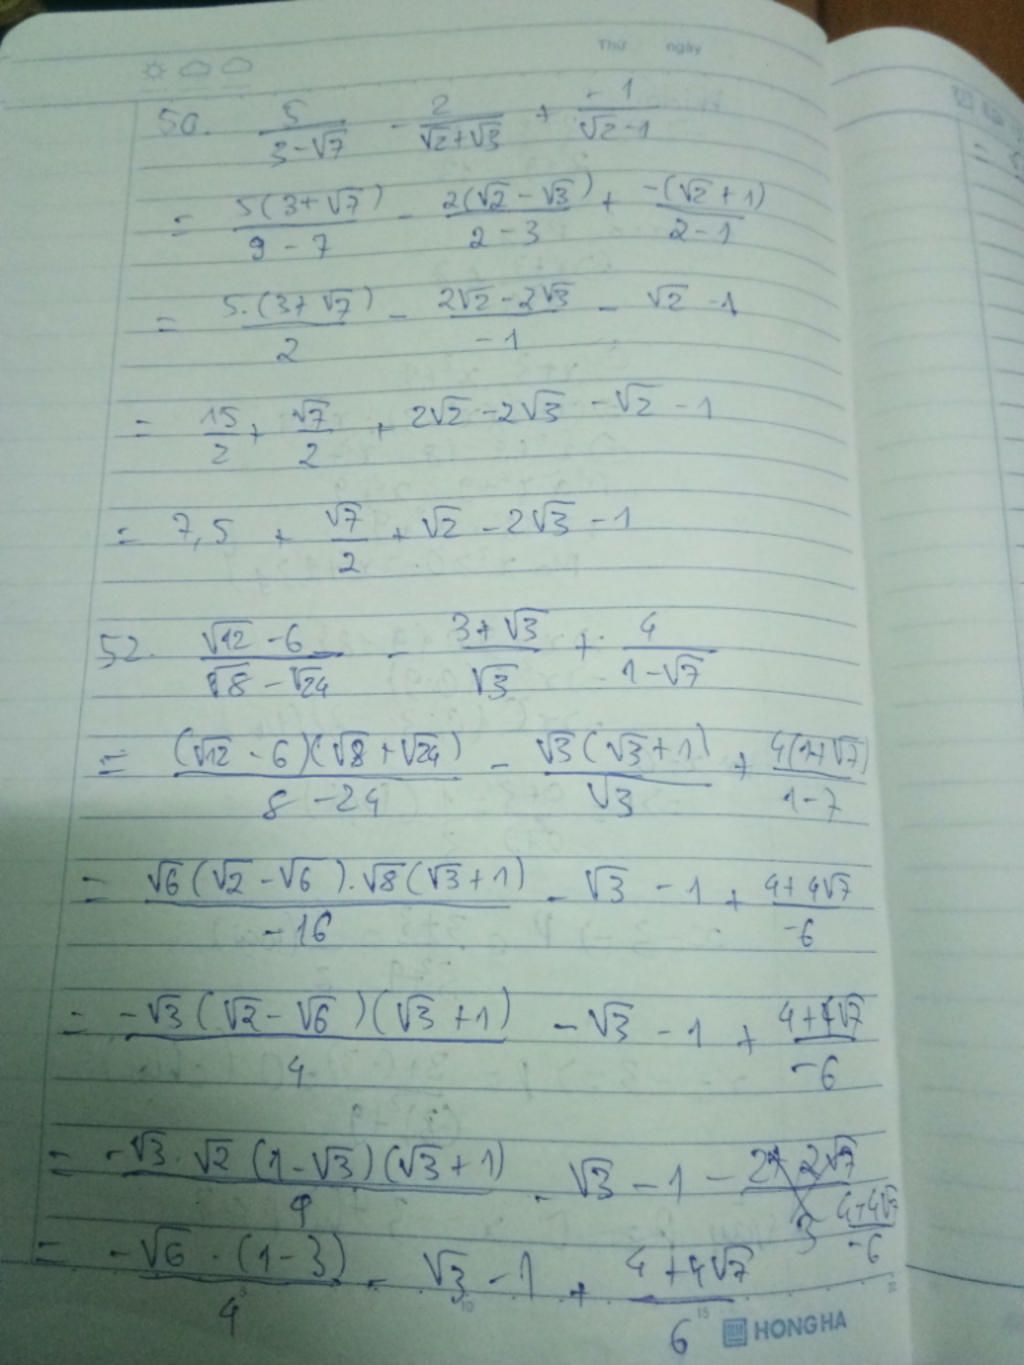 Thứ ngày
50. 5/(3-√7) - 2/(√2+√3) + -1/(√2-1)
= 5(3+√7)/(9-7) - 2(√2-√3)/(2-3) + -(√2+1)/(2-1)
= 5.(3+√7)/2 - (2√2-2√3)/-1 - √2 - 1
= 15/2 + √7/2 + 2√2 - 2√3 - √2 - 1
= 7,5 + √7/2 + √2 - 2√3 - 1
52. (√12-6)/(√8-√24) - (3+√3)/√3 + 4/(1-√7)
= (√12-6)(√8+√24)/(8-24) - √3(√3+1)/√3 + 4(1+√7)/(1-7)
= √6(√2-√6).√8(√3+1)/-16 - √3 - 1 + (4+4√7)/-6
= -√3(√2-√6)(√3+1)/4 - √3 - 1 + (4+4√7)/-6
= -√3.√2(1-√3)(√3+1)/4 - √3 - 1 - (4+4√7)/-6
= -√6.(1-3)/4 - √3 - 1 + (4+4√7)/6
HONG HA